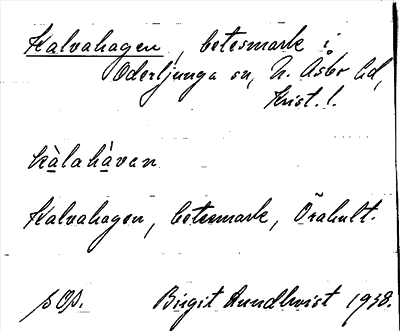 Kalvahagen, betesmark i
Oderljunga sn, N. Åsbo hd,
Krist. l.
kàlahàvan
Kalvahagen, betesmark, Örahult.
Birgit Rundkvist 1938.